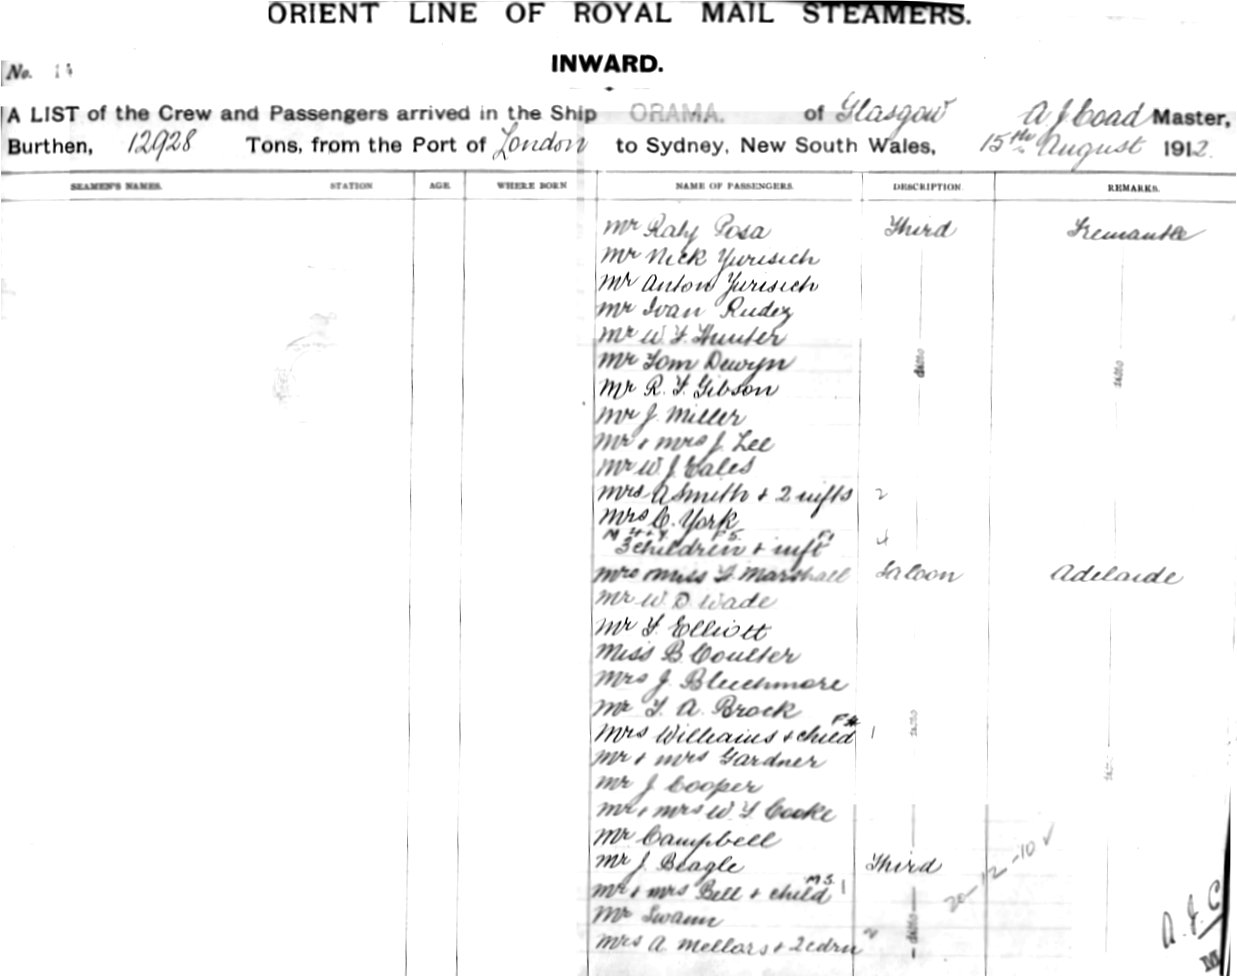 ORIENT LINE OF ROYAL MAIL STEAMERS.
INWARD.
No. 14
A LIST of the Crew and Passengers arrived in the Ship ORAMA. of Glasgow A J Coad Master,
Burthen, 12928 Tons, from the Port of London to Sydney, New South Wales, 15th August 1912.
SEAMEN'S NAMES. STATION AGE WHERE BORN NAME OF PASSENGERS. DESCRIPTION REMARKS.
Mr Posa Third Fremantle
Mr Nick Yurisich
Mr Anton Yurisich
Mr Ivan Rudez
Mr W. F. Hunter
Mr Tom Dewyn ditto ditto
Mr R. F. Gibson
Mr J. Miller
Mr & Mrs J. Lee
Mr W J Eales
Mrs A Smith & 2 infts 2
Mrs C. York
3 children & inft 4
Mrs & Miss F. Marshall Saloon Adelaide
Mr W. D Wade
Mr F. Elliott
Miss B. Coulter
Mrs J Bleechmore
Mr F. A. Brock ditto
Mrs Williams & child 1
Mr & Mrs Gardner ditto
Mr J Cooper
Mr & Mrs W. F. Cooke
Mr Campbell
Mr J. Beagle Third 20-12-10 ✓
Mr & Mrs Bell & child M5 1
Mr Swann ditto A. J. C
Mrs A Mellars & 2 cdrn 2 M